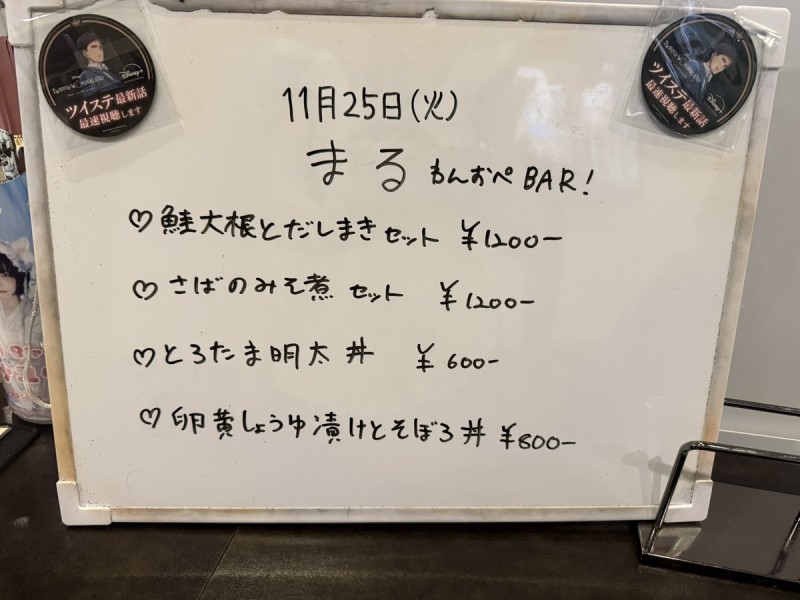 ツイステ最新話
最速視聴します
Disney+
ツイステ最新話
最速視聴します
Disney+
11月25日(火)
まる もんおぺBAR!
♡鮭大根とだしまきセット ¥1200-
♡さばのみそ煮セット ¥1200-
♡とろたま明太丼 ¥600-
♡卵黄しょうゆ漬けとそぼろ丼 ¥800-